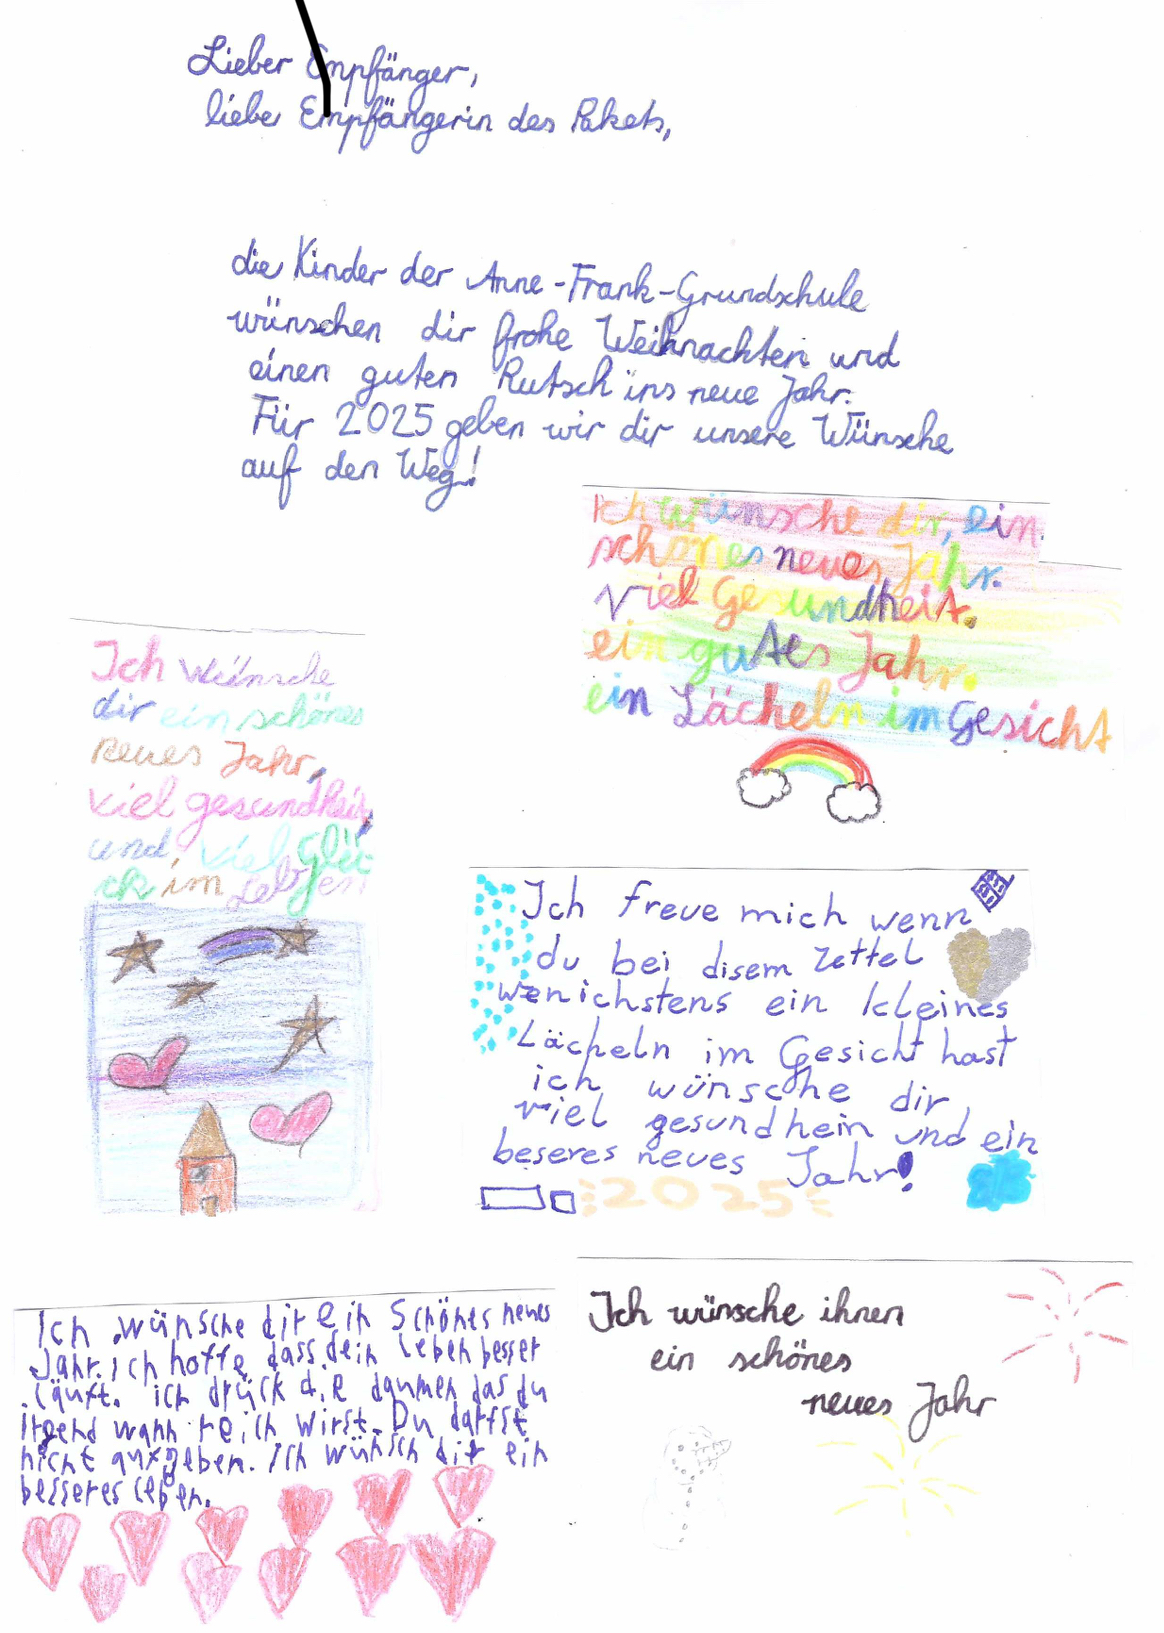 Lieber Empfänger,
liebe Empfängerin des Pakets,
die Kinder der Anne-Frank-Grundschule
wünschen dir frohe Weihnachten und
einen guten Rutsch ins neue Jahr.
Für 2025 geben wir dir unsere Wünsche
auf den Weg!
Ich wünsche dir, ein
schönes neues Jahr.
Viel Gesundheit.
ein gutes Jahr.
ein Lächeln im Gesicht
Ich wünsche
dir ein schönes
neues Jahr,
viel gesundheit,
und, viel Glü
ck im Leben
Ich freue mich wenn
du bei disem Zettel
wenichstens ein kleines
Lächeln im Gesicht hast
ich wünsche dir
viel gesundhein und ein
beseres neues Jahr!
2025
Ich wünsche dir ein Schönes neues
Jahr. ich hoffe, dass dein Leben besser
läuft. ich drück die daumen das du
irgend wann reich wirst. Du darfst
nicht aufgeben. Ich wünsch dir ein
besseres leben.
Ich wünsche ihnen
ein schönes
neues Jahr